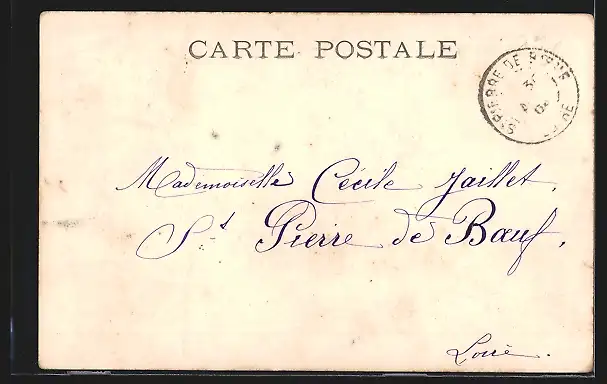 CARTE POSTALE
St PIERRE DE BŒUF
Mademoiselle Cécile Jaillet,
St Pierre de Bœuf,
Loire.